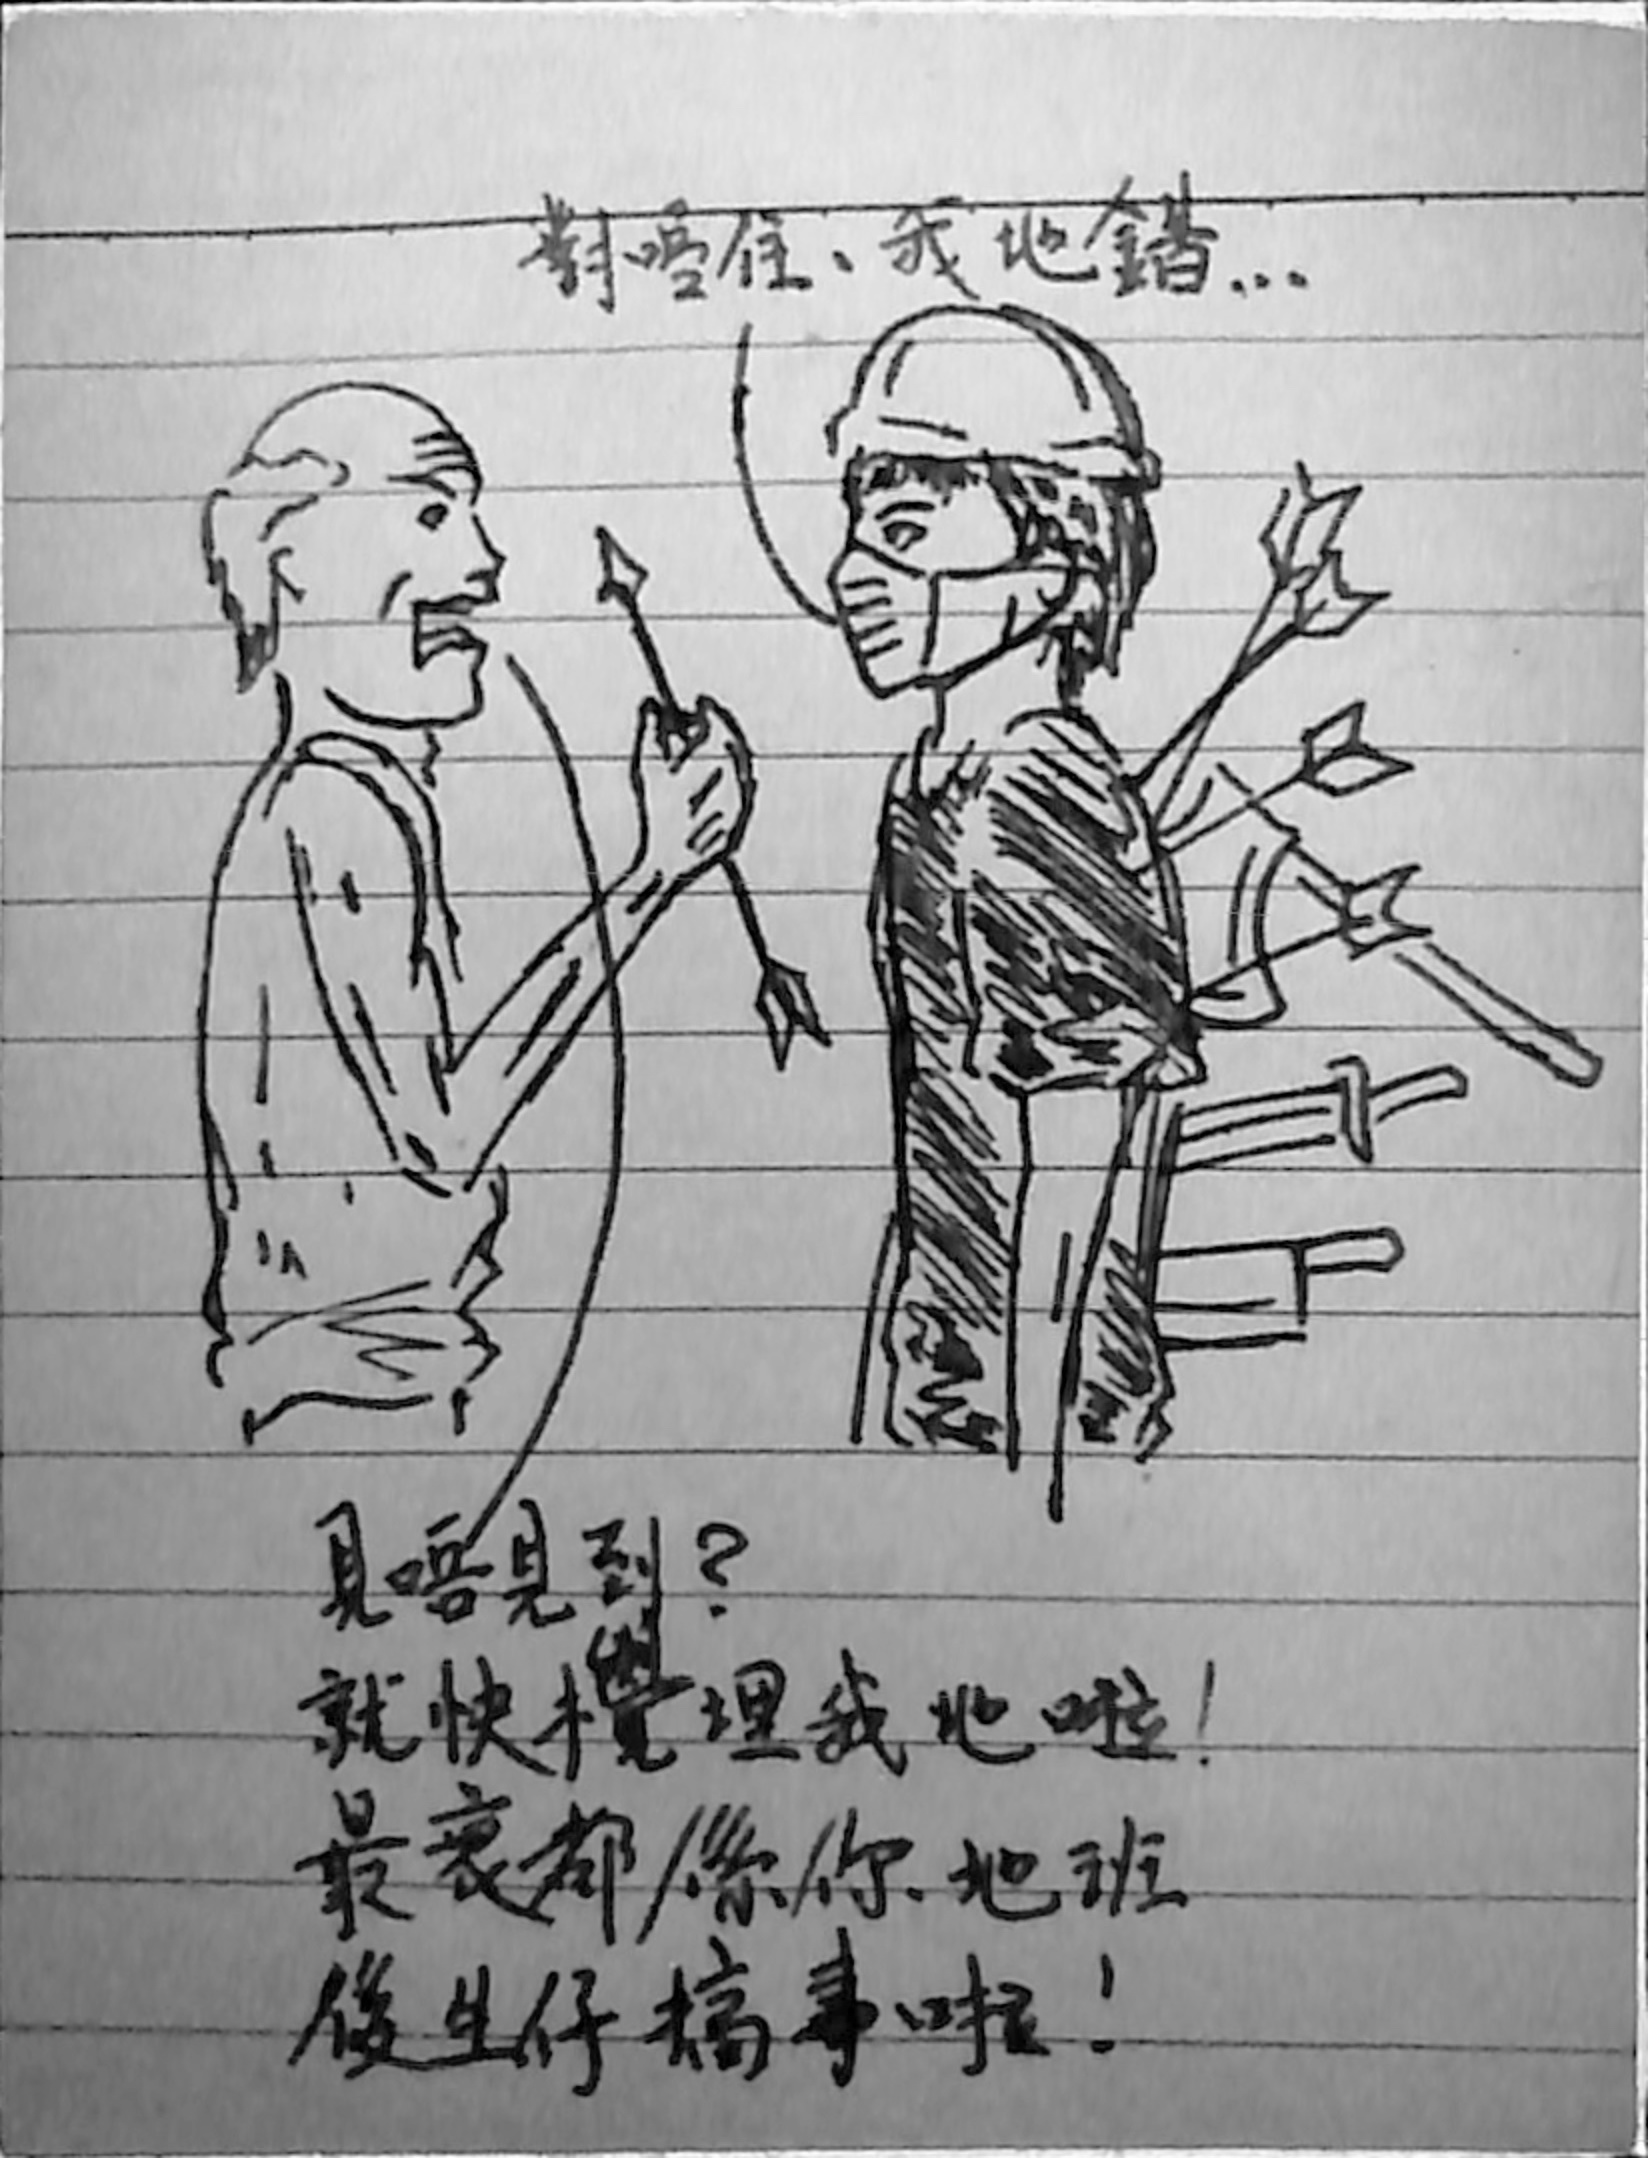 對唔住、我地錯...
見唔見到？
就快攪埋我地啦！
最衰都係你地班
後生仔搞事啦！